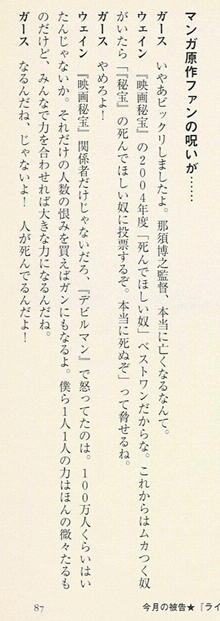 マンガ原作ファンの呪いが……
ガース　いやあビックリしましたよ。那須博之監督、本当に亡くなるなんて。
ウェイン　『映画秘宝』の2004年度「死んでほしい奴」ベストワンだからな。これからはムカつく奴
がいたら「『秘宝』の死んでほしい奴に投票するぞ。本当に死ぬぞ」って脅せるね。
ガース　やめろよ！
ウェイン　『映画秘宝』関係者だけじゃないだろ、『デビルマン』で怒ってたのは。100万人くらいはい
たんじゃないか。それだけの人数の恨みを買えばガンにもなるよ。僕ら1人1人の力はほんの微々たるも
のだけど、みんなで力を合わせれば大きな力になるんだね。
ガース　なるんだね、じゃないよ！　人が死んでるんだよ！
87
今月の被告★『ライ